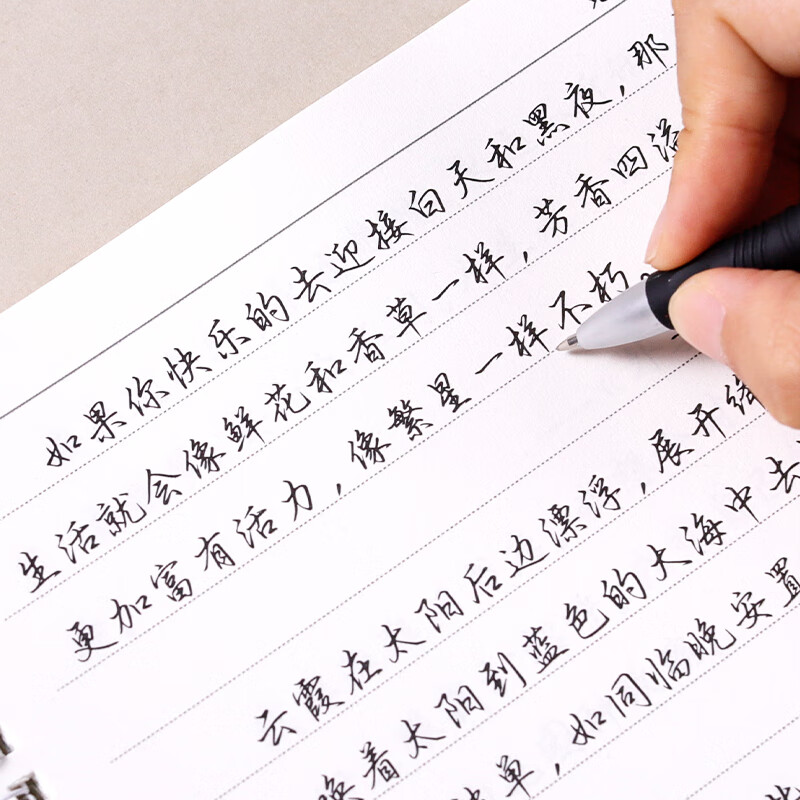 如果你快乐的去迎接白天和黑夜，那
生活就会像鲜花和香草一样，芳香四溢
更加富有活力，像繁星一样不朽。
云霞在太阳后边漂浮，展开
着太阳到蓝色的大海中去
单，如同临晚安置